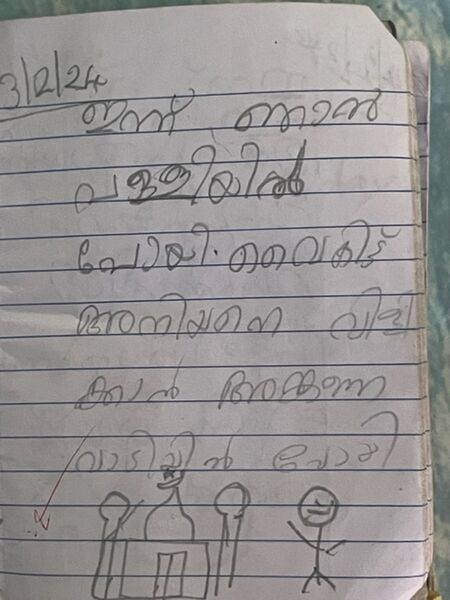 3/2/24
ഇന്ന് ഞാൻ
പള്ളിയിൽ
പോയി. വൈകിട്ട്
അനിയനെ വിളി
ക്കാൻ അങ്കണ
വാടിയിൽ പോയി